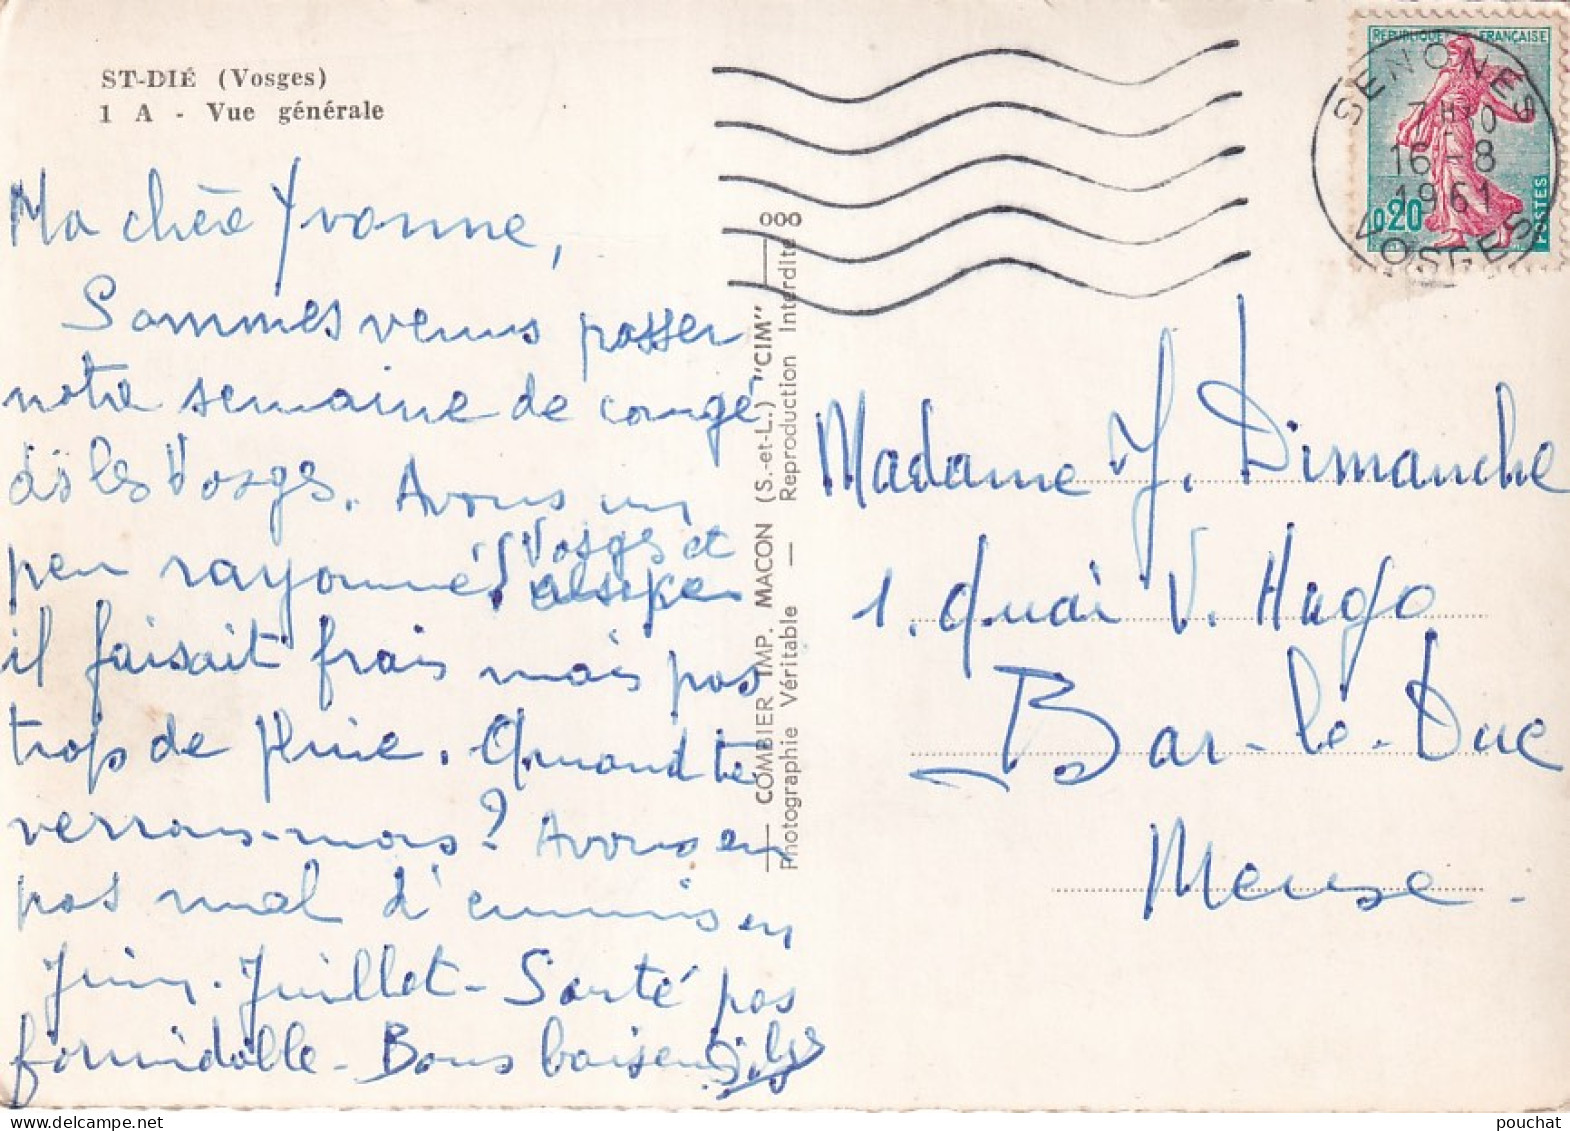 ST-DIÉ (Vosges)
1 A - Vue générale
Ma chère Yvonne,
Sommes venus passer
notre semaine de congé
ds les Vosges. Avons un
peu rayonné Vosges et
il faisait frais mais pas
trop de pluie. Quand te
verrons-nous ? Avons eu
pas mal d'ennuis en
Juin-Juillet - Santé pas
formidable - Bons baisers
COMBIER IMP. MACON (S.-et-L.) "CIM"
Photographie Véritable — Reproduction Interdite
000
RÉPUBLIQUE FRANÇAISE
0,20
POSTES
SENONES
7H30
16-8
1961
VOSGES
Madame J. Dimanche
1. Quai V. Hugo
Bar-le-Duc
Meuse.
pouchat